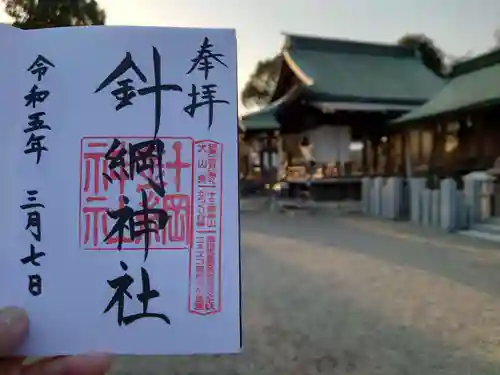 奉拝
針綱神社
令和五年 三月七日
針綱
神社